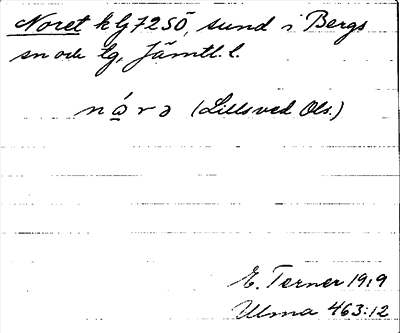 Noret kG72SÖ, sund i Bergs
sn och tg, Jämtl. l.
ná̱rə (Lillsved Ols.)
E. Terner 1919
Ulma 463:12